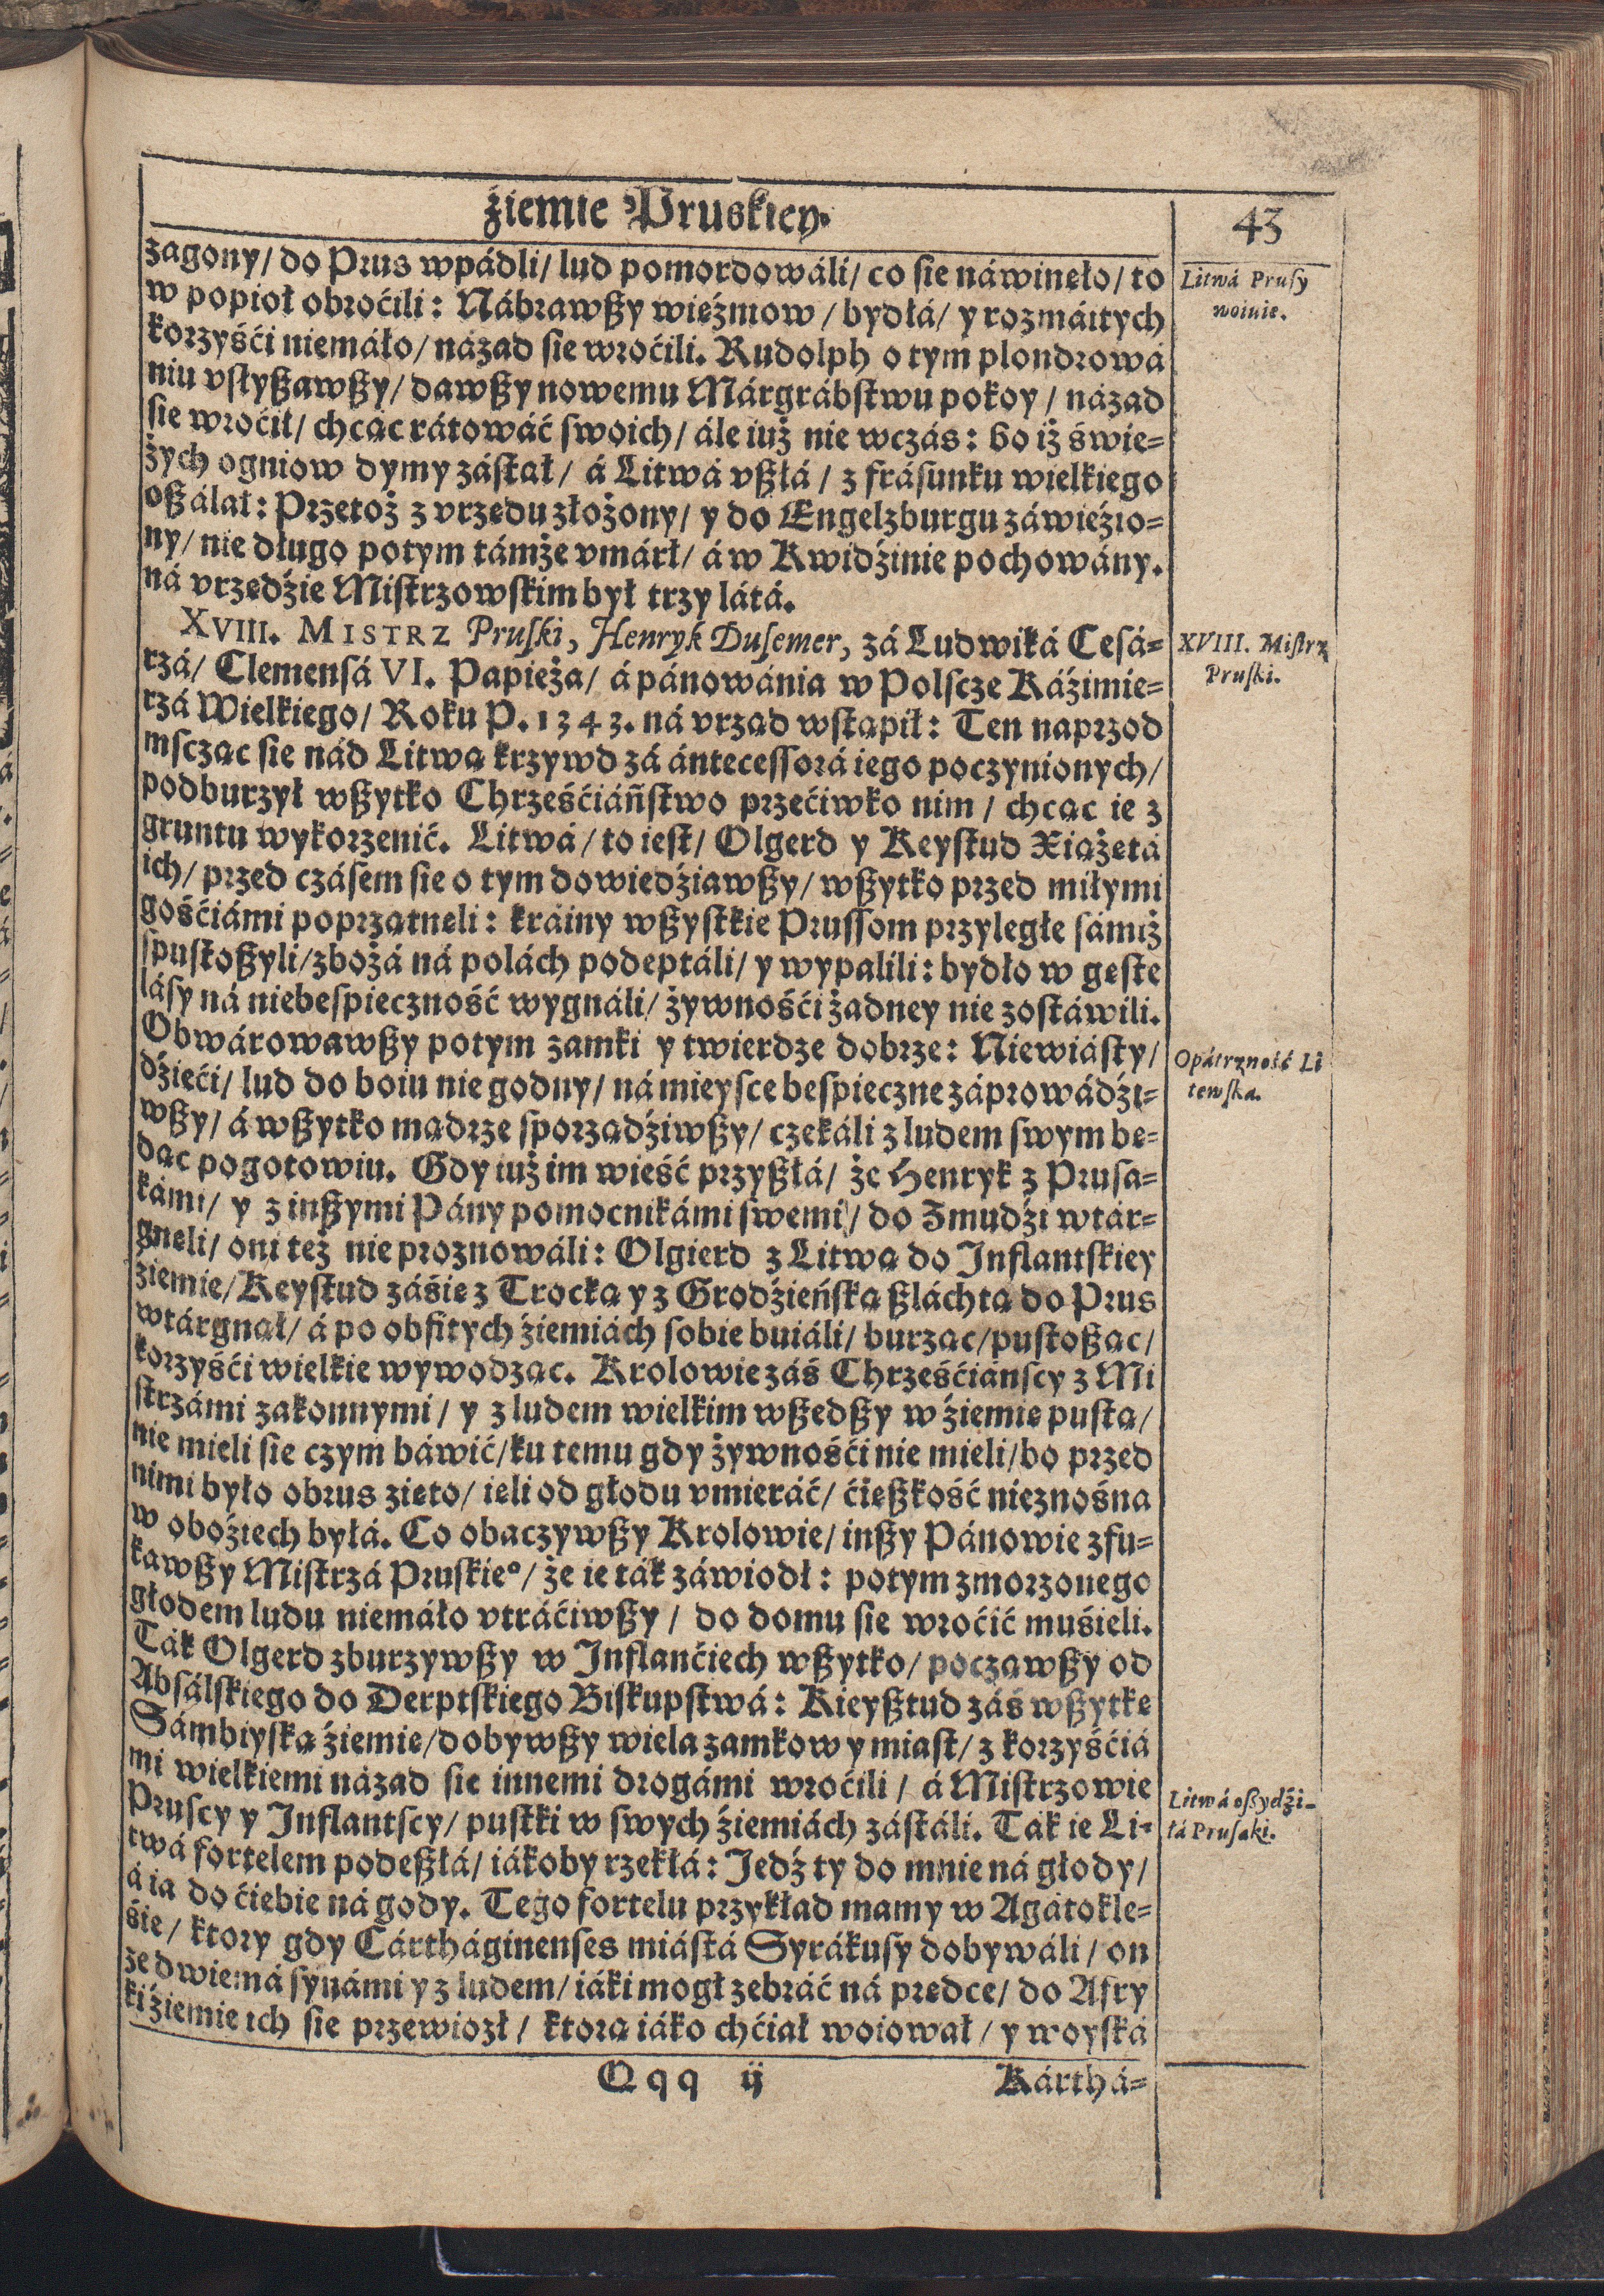 źiemie Pruskiey.
43
zagony/ do Prus wpádli/ lud pomordowáli/ co sie náwineło/ to
w popioł obroćili: Nábrawßy wieźniow/ bydłá/ y rozmáitych
korzyśći niemáło/ názad sie wroćili. Rudolph o tym plondrowá
niu vsłyßawßy/ dawßy nowemu Márgrábstwu pokoy/ názad
sie wroćił/ chcąc rátowáć swoich/ ále iuż nie wczás: bo iż świe=
żych ogniow dymy zástał/ á Litwá vßłá/ z frásunku wielkiego
oßálał: Przetoż z vrzedu złożony/ y do Engelzburgu záwieźio=
ny/ nie długo potym támże vmárł/ á w Kwidźinie pochowány.
ná vrzedźie Mistrzowskim był trzy látá.
XVIII. MISTRZ Pruski, Henryk Dusemer, zá Ludwiká Cesá=
rzá/ Clemensá VI. Papieża/ á pánowánia w Polscze Káźimie=
rzá Wielkiego/ Roku P. 1343. ná vrząd wstąpił: Ten naprzod
mscząc sie nád Litwą krzywd zá ántecessorá iego poczynionych/
podburzył wßytko Chrześćiáństwo przećiwko nim/ chcąc ie z
gruntu wykorzenić. Litwá/ to iest/ Olgerd y Keystud Xiążetá
ich/ przed czásem sie o tym dowiedźiawßy/ wßytko przed miłymi
gośćiámi poprzątneli: kráiny wßystkie Prussom przyległe sámiż
spustoßyli/ zbożá ná polách podeptáli/ y wypalili: bydło w geste
lásy ná niebespieczność wygnáli/ żywnośći żadney nie zostáwili.
Obwárowawßy potym zamki y twierdze dobrze: Niewiásty/
dźieći/ lud do boiu nie godny/ ná mieysce bespieczne záprowádźi=
wßy/ á wßytko mądrze sporządźiwßy/ czekáli z ludem swym be=
dąc pogotowiu. Gdy iuż im wieść przyßłá/ że Henryk z Prusa=
kámi/ y z inßymi Pány pomocnikámi swemi/ do Zmudźi wtár=
gneli/ oni też nie proznowáli: Olgierd z Litwą do Inflantskiey
źiemie/ Keystud záśie z Trocką y z Grodźieńską ßláchtą do Prus
wtárgnął/ á po obfitych źiemiách sobie buiáli/ burząc/ pustoßąc/
korzyśći wielkie wywodząc. Krolowie záś Chrześćiánscy z Mi
strzámi zakonnymi/ y z ludem wielkim wßedßy w źiemie pustą/
nie mieli sie czym báwić/ ku temu gdy żywnośći nie mieli/ bo przed
nimi było obrus zieto/ ieli od głodu vmieráć/ ćießkość nieznośna
w oboźiech byłá. Co obaczywßy Krolowie/ inßy Pánowie zfu=
kawßy Mistrzá Pruskieº/ że ie ták záwiodł: potym zmorzonego
głodem ludu niemáło vtráćiwßy/ do domu sie wroćić muśieli.
Ták Olgerd zburzywßy w Inflanćiech wßytko/ począwßy od
Absálskiego do Derptskiego Biskupstwá: Kieyßtud záś wßytke
Sámbiyską źiemie/ dobywßy wiela zamkow y miast/ z korzyśćiá
mi wielkiemi názad sie innemi drogámi wroćili/ á Mistrzowie
Pruscy y Inflantscy/ pustki w swych źiemiách zástáli. Tak ie Li=
twá fortelem podeßłá/ iákoby rzekłá: Jedź ty do mnie ná głody/
á ia do ćiebie ná gody. Tego fortelu przykład mamy w Agátokle=
śie/ ktory gdy Cártháginenses miástá Syrákusy dobywáli/ on
ze dwiemá synámi y z ludem/ iáki mogł zebráć ná predce/ do Afry
ki źiemie ich sie przewiozł/ ktorą iáko chćiał woiował/ y woyská
Qqq ij
Kárthá=
Litwá Prusy
woiuie.
XVIII. Mistrz
Pruski.
Opátrzność Li
tewska.
Litwá oßydźi=
łá Prusaki.